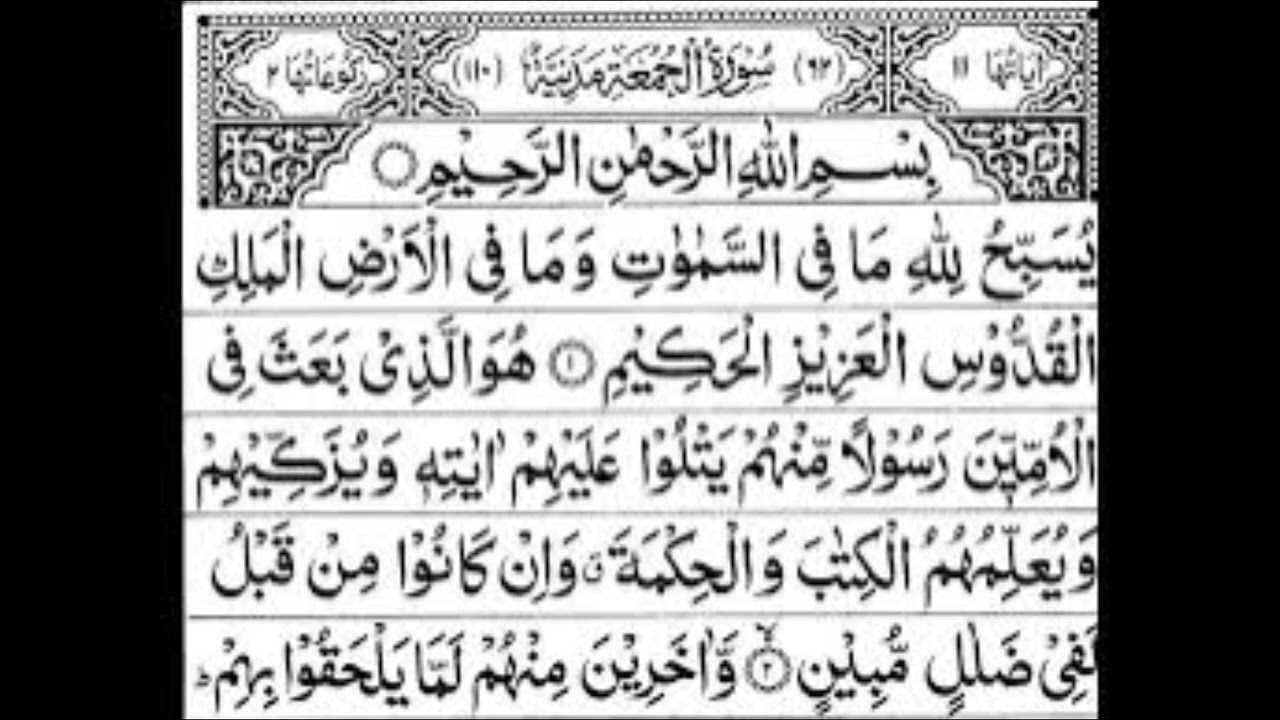 اٰيَاتُهَا ١١ (٦٢) سُوْرَةُ الْجُمُعَةِ مَدَنِيَّةٌ (١١٠) رُكُوْعَاتُهَا ٢
بِسْمِ اللهِ الرَّحْمٰنِ الرَّحِيْمِ
يُسَبِّحُ لِلّٰهِ مَا فِى السَّمٰوٰتِ وَمَا فِى الْاَرْضِ الْمَلِكِ
الْقُدُّوْسِ الْعَزِيْزِ الْحَكِيْمِ ۝١ هُوَالَّذِىْ بَعَثَ فِى
الْاُمِّيّٖنَ رَسُوْلًا مِّنْهُمْ يَتْلُوْا عَلَيْهِمْ اٰيٰتِهٖ وَيُزَكِّيْهِمْ
وَيُعَلِّمُهُمُ الْكِتٰبَ وَالْحِكْمَةَ ۗ وَاِنْ كَانُوْا مِنْ قَبْلُ
لَفِىْ ضَلٰلٍ مُّبِيْنٍ ۝٢ وَّاٰخَرِيْنَ مِنْهُمْ لَمَّا يَلْحَقُوْا بِهِمْ ؕ